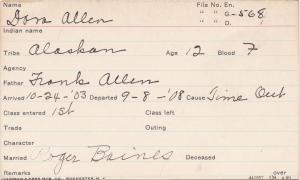 Name File No. En.
Dora Allen " " G-568
Indian name " " D.
Tribe Alaskan Age 12 Blood ?
Agency
Father Frank Allen
Arrived 10-24-'03 Departed 9-8-'08 Cause Time Out
Class entered 1st Class left
Trade Outing
Character
Married Roger Baines Deceased
Remarks over